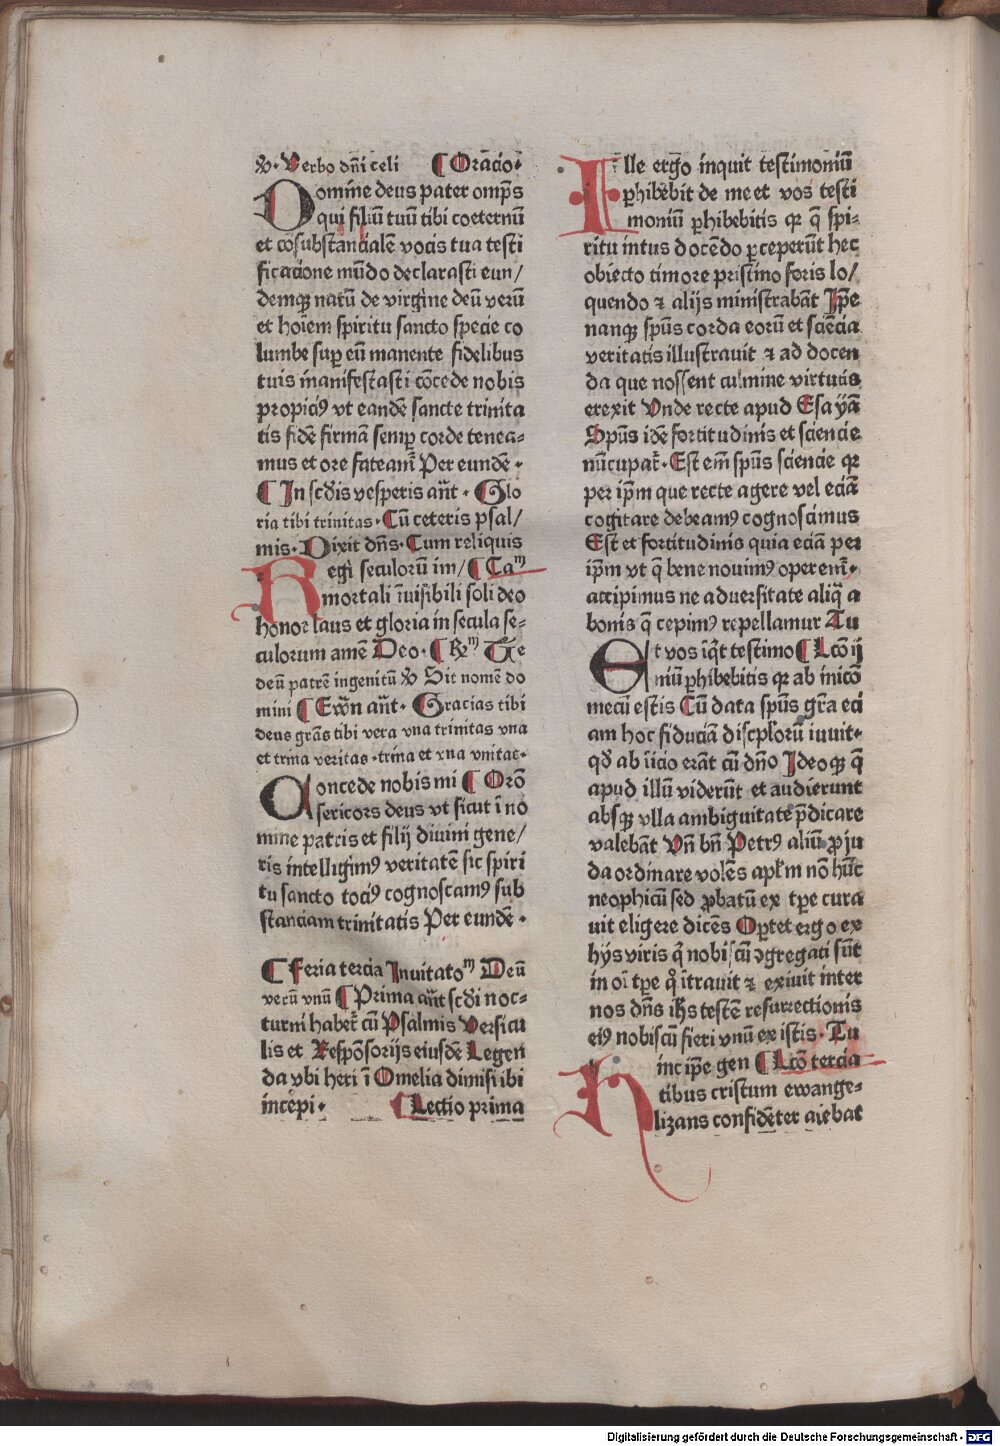 ℣· Verbo dn̄i celi ¶ Orac̄io·
Domine deus pater omp̄s
qui filiū tuū tibi coeternū
et cōsubstancialē vocis tua testi
ficatione mūdo declarasti eun/
demqꝫ natū de virgine deū verū
et hoīem spiritu sancto specie co
lumbe suꝑ eū manente fidelibus
tuis manifestasti cōcede nobis
propiciꝰ vt eandē sancte trinita
tis fidē firmā semꝑ corde tenea-
mus et ore fateamr̄ Per eundē·
¶ In scd̄is vesperis an̄t· Glo
ria tibi trinitas· Cū ceteris psal/
mis· Dixit dn̄s· Cum reliquis
Regi seculorū im/ ¶ Caᵐ
mortali īuisibili soli deo
honor laus et gloria in secula se-
culorum amē Deo· ¶ ℟ᵐ Te
deū patrē ingenitū ℣ Sit nomē do
mini ¶ Ew̄n an̄t· Gracias tibi
deus grās tibi vera vna trinitas vna
et trina veritas ·trina et vna vnitas·
Concede nobis mi ¶ Orō
sericors deus vt sicut ī no
mine patris et filij diuini gene/
ris intelligimꝰ veritatē sic spiri
tu sancto tociꝰ cognoscamꝰ sub
stanciam trinitatis Per eundē·
¶ Feria tercia Inuitatoᵐ Deū
verū vnū ¶ Prima an̄t scd̄i noc-
turni habet̄ cū Psalmis Versicu
lis et Respōsorijs eiusdē Legen
da vbi heri ī Omelia dimisi ibi
incepi· ¶ Lectio prima
Ille ergo inquit testimoniū
ꝑhibebit de me et vos testi
moniū ꝑhibebitis qꝛ q̄ spi-
ritu intus docēdo ꝑceperūt hec
obiecto timore pristino foris lo/
quendo ⁊ alijs ministrabāt Ip̄e
nanqꝫ sp̄us corda eorū et sciēcia
veritatis illustrauit ⁊ ad docen
da que nossent culmine virtutis
erexit Vnde recte apud Esayā
Sp̄us idē fortitudinis et sciencie
nūcupat̄· Est em̄ sp̄us sciencie qꝛ
per ip̄m que recte agere vel eciā
cogitare debeamꝰ cognoscimus
Est et fortitudinis quia eciā per
ip̄m vt q̄ bene nouimꝰ operemr̄·
accipimus ne aduersitate aliq̄ a
bonis q̄ cepimꝰ repellamur Tu
Et vos īqͥt testimo ¶ Lcō ij
niū ꝑhibebitis qꝛ ab inicō
mecū estis Cū data sp̄us gr̄a eci
am hoc fiduciā discip̄lorū iuuit·
qd̄ ab īicio erāt cū dn̄o Ideoqꝫ q̄
apud illū viderūt et audierunt
absqꝫ vlla ambiguitate p̄dicare
valebāt Vn̄ bn̄ Petrꝰ aliū ꝓ ju
da ordinare volēs apl̄m nō hūc
neophicū sed ꝓbatū ex tp̄e cura
uit eligere dicēs Oꝑtet ergo ex
hijs viris qͥ nobiscū ꝯgregati sūt
in oī tp̄e qͦ ītrauit ⁊ exiuit inter
nos dn̄s ih̄s testē resurrectionis
eiꝰ nobiscū fieri vnū ex istis· Tu
Hinc ip̄e gen ¶ Lcō tercia
tibus cristum ewange-
lizans confidēter aiebat
Digitalisierung gefördert durch die Deutsche Forschungsgemeinschaft - DFG